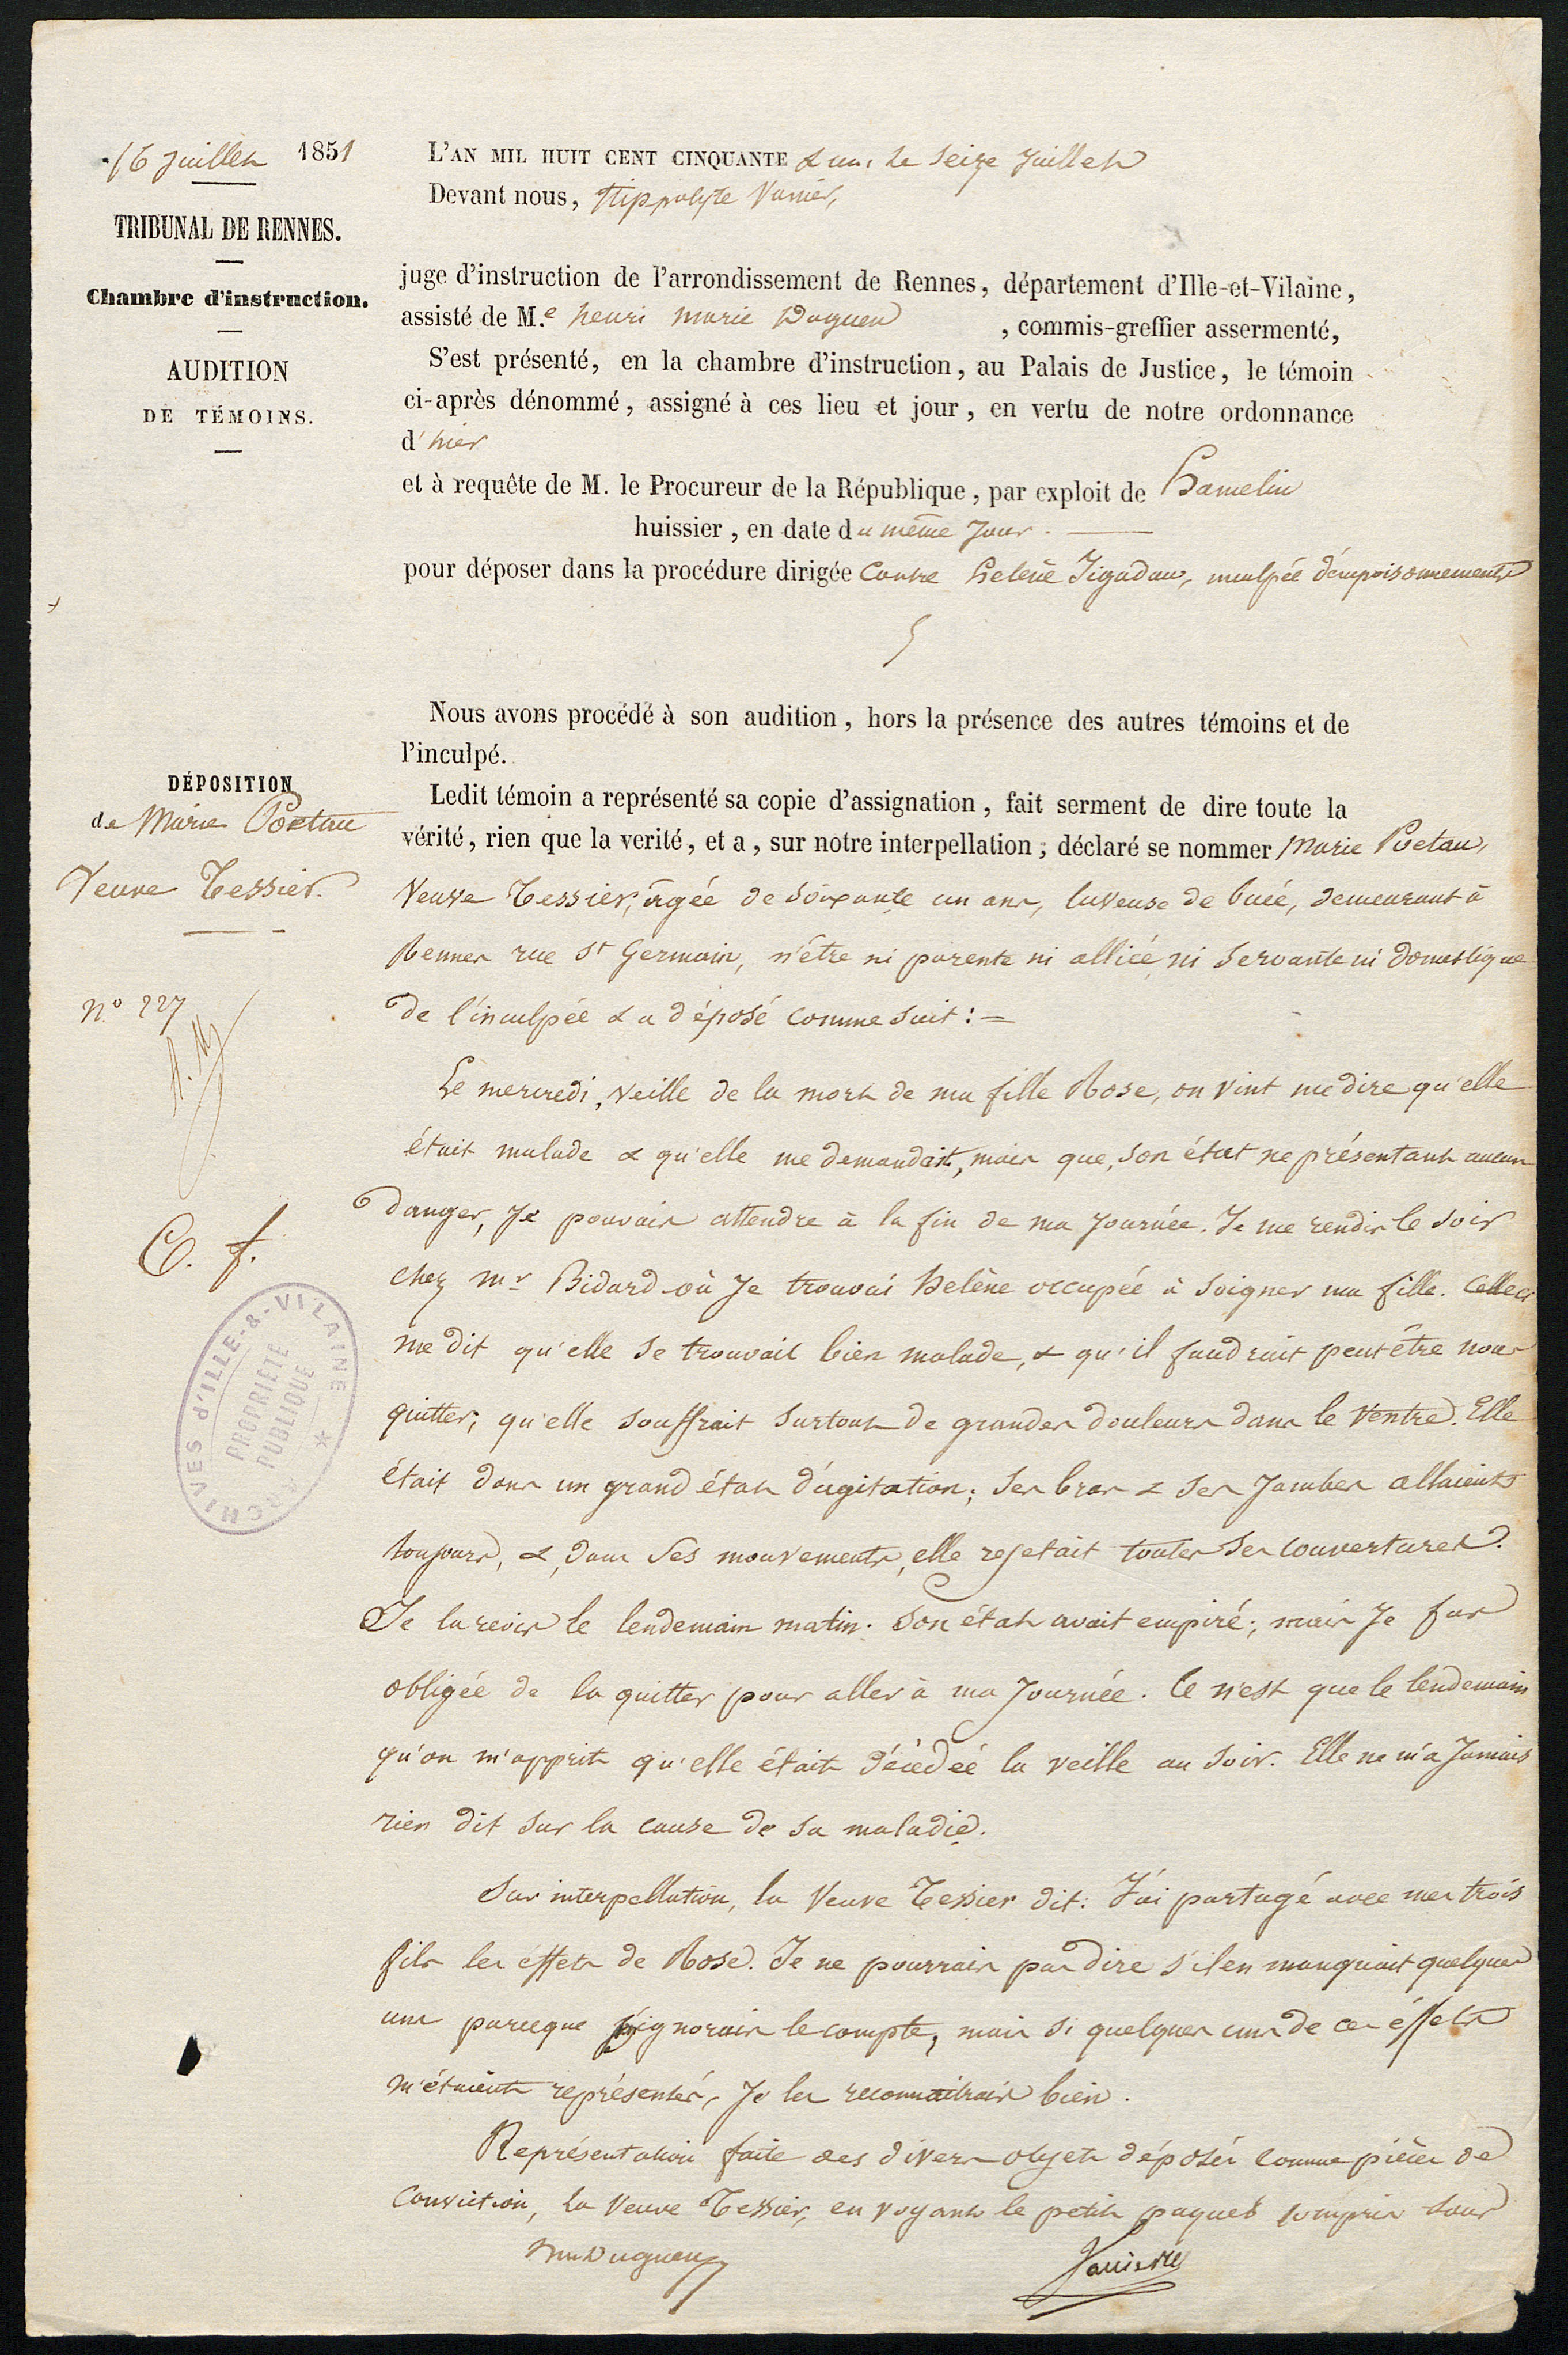 16 Juillet 1851
TRIBUNAL DE RENNES.
Chambre d'instruction.
AUDITION
DE TÉMOINS.
L'AN MIL HUIT CENT CINQUANTE & un, le Seize Juillet
Devant nous, Hippolyte Vannier,
juge d'instruction de l'arrondissement de Rennes, département d'Ille-et-Vilaine,
assisté de M.e henri marie Daguen , commis-greffier assermenté,
S'est présenté, en la chambre d'instruction, au Palais de Justice, le témoin
ci-après dénommé, assigné à ces lieu et jour, en vertu de notre ordonnance
d'hier
et à requête de M. le Procureur de la République, par exploit de Hamelin
huissier, en date du même Jour.
pour déposer dans la procédure dirigée Contre helène Jégadau, inculpée d'empoisonnements
Nous avons procédé à son audition, hors la présence des autres témoins et de
l'inculpé.
DÉPOSITION
de Marie Poetau
Veuve Tessier.
n° 227
C. f.
ARCHIVES d'ILLE-&-VILAINE *
PROPRIÉTÉ
PUBLIQUE
Ledit témoin a représenté sa copie d'assignation, fait serment de dire toute la
vérité, rien que la verité, et a, sur notre interpellation, déclaré se nommer Marie Poetau,
Veuve Tessier, âgée de Soixante un ans, laveuse de buée, demeurant à
Rennes rue St Germain, n'être ni parente ni alliée ni Servante ni domestique
de l'inculpée & a déposé comme Suit : =
Le mercredi, veille de la mort de ma fille Rose, on vint me dire qu'elle
était malade & qu'elle me demandait, mais que, son état ne présentant aucun
danger, Je pouvais attendre à la fin de ma Journée. Je me rendis le soir
chez Mr Bidard où Je trouvai helène occupée à Soigner ma fille. Celle ci
me dit qu'elle se trouvait bien malade, & qu'il faudrait peut être nous
quitter; qu'elle souffrait surtout de grandes douleurs dans le ventre. Elle
était dans un grand état d'agitation; Ses bras & Ses Jambes allaient
toujours, &, dans Ses mouvements, elle rejetait toutes Ses couvertures.
Je la revis le lendemain matin. Son état avait empiré; mais Je fus
obligée de la quitter pour aller à ma Journée. Ce n'est que le lendemain
qu'on m'apprit qu'elle était décédée la veille au Soir. Elle ne m'a Jamais
rien dit sur la cause de sa maladie.
Sur interpellation, la Veuve Tessier dit: J'ai partagé avec mes trois
fils les effets de Rose. Je ne pourrais pas dire s'il en manquait quelques
uns parceque j'ignorais le compte, mais Si quelques uns de ces éffets
m'étaient représentés, Je les reconnaitrais bien.
Représentation faite des divers objets déposés comme pièces de
Conviction, la Veuve Tessier, en voyant le petit paquet compris sous
hm Daguen